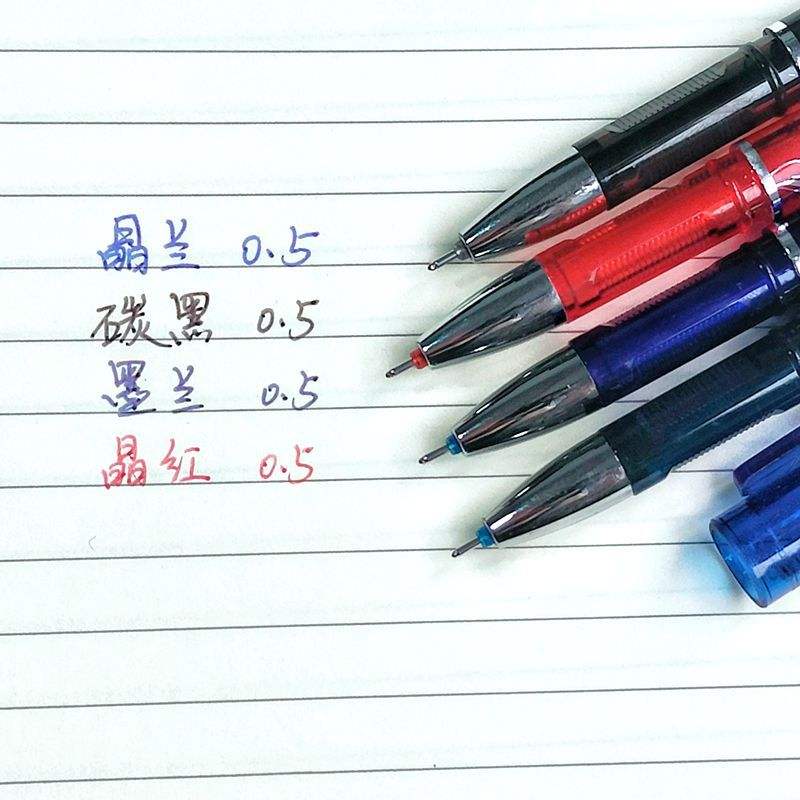 晶兰 0.5
碳黑 0.5
墨兰 0.5
晶红 0.5